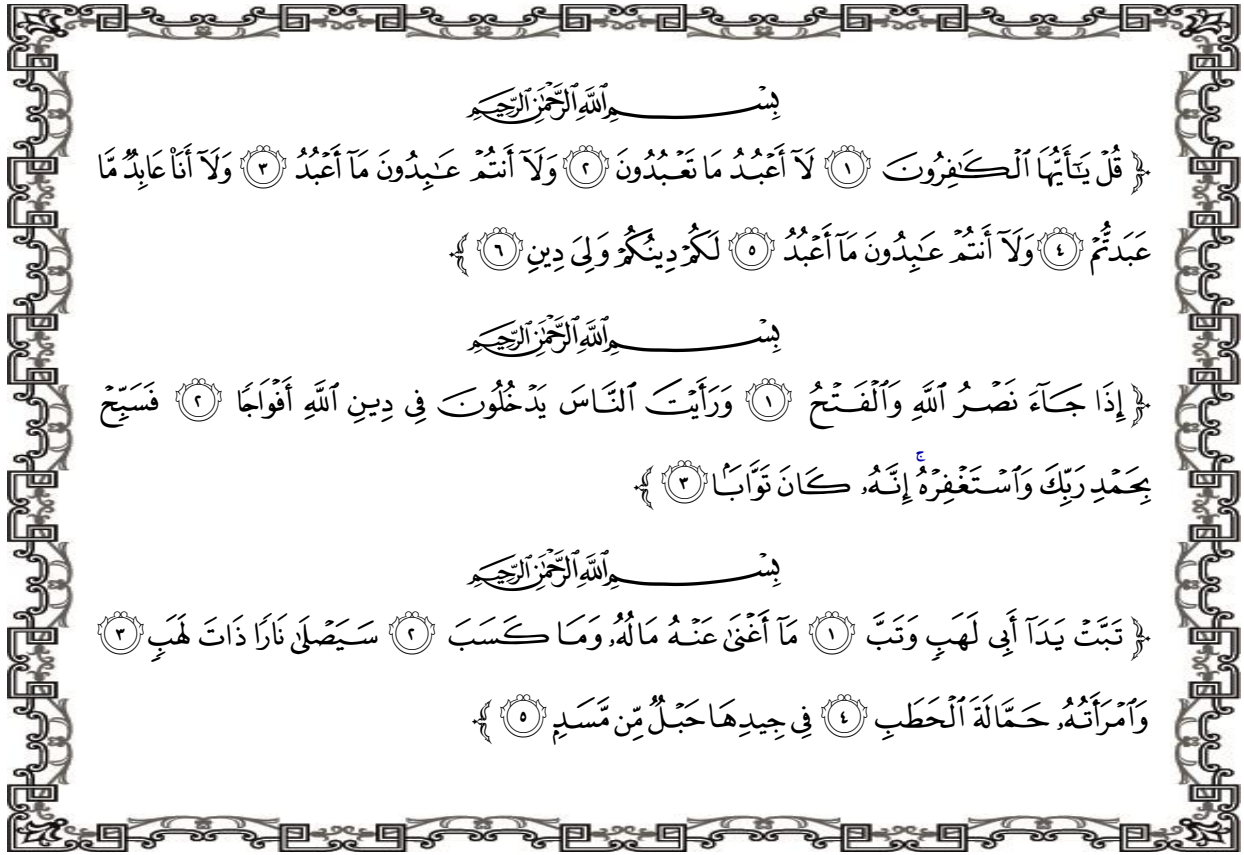 بِسْمِ ٱللَّهِ ٱلرَّحْمَٰنِ ٱلرَّحِيمِ
﴿ قُلْ يَـٰٓأَيُّهَا ٱلْكَـٰفِرُونَ ١ لَآ أَعْبُدُ مَا تَعْبُدُونَ ٢ وَلَآ أَنتُمْ عَـٰبِدُونَ مَآ أَعْبُدُ ٣ وَلَآ أَنَا۠ عَابِدٌ مَّا
عَبَدتُّمْ ٤ وَلَآ أَنتُمْ عَـٰبِدُونَ مَآ أَعْبُدُ ٥ لَكُمْ دِينُكُمْ وَلِىَ دِينِ ٦ ﴾
بِسْمِ ٱللَّهِ ٱلرَّحْمَٰنِ ٱلرَّحِيمِ
﴿ إِذَا جَآءَ نَصْرُ ٱللَّهِ وَٱلْفَتْحُ ١ وَرَأَيْتَ ٱلنَّاسَ يَدْخُلُونَ فِى دِينِ ٱللَّهِ أَفْوَاجًا ٢ فَسَبِّحْ
بِحَمْدِ رَبِّكَ وَٱسْتَغْفِرْهُ ۚ إِنَّهُۥ كَانَ تَوَّابَۢا ٣ ﴾
بِسْمِ ٱللَّهِ ٱلرَّحْمَٰنِ ٱلرَّحِيمِ
﴿ تَبَّتْ يَدَآ أَبِى لَهَبٍ وَتَبَّ ١ مَآ أَغْنَىٰ عَنْهُ مَالُهُۥ وَمَا كَسَبَ ٢ سَيَصْلَىٰ نَارًا ذَاتَ لَهَبٍ ٣
وَٱمْرَأَتُهُۥ حَمَّالَةَ ٱلْحَطَبِ ٤ فِى جِيدِهَا حَبْلٌ مِّن مَّسَدٍۭ ٥ ﴾